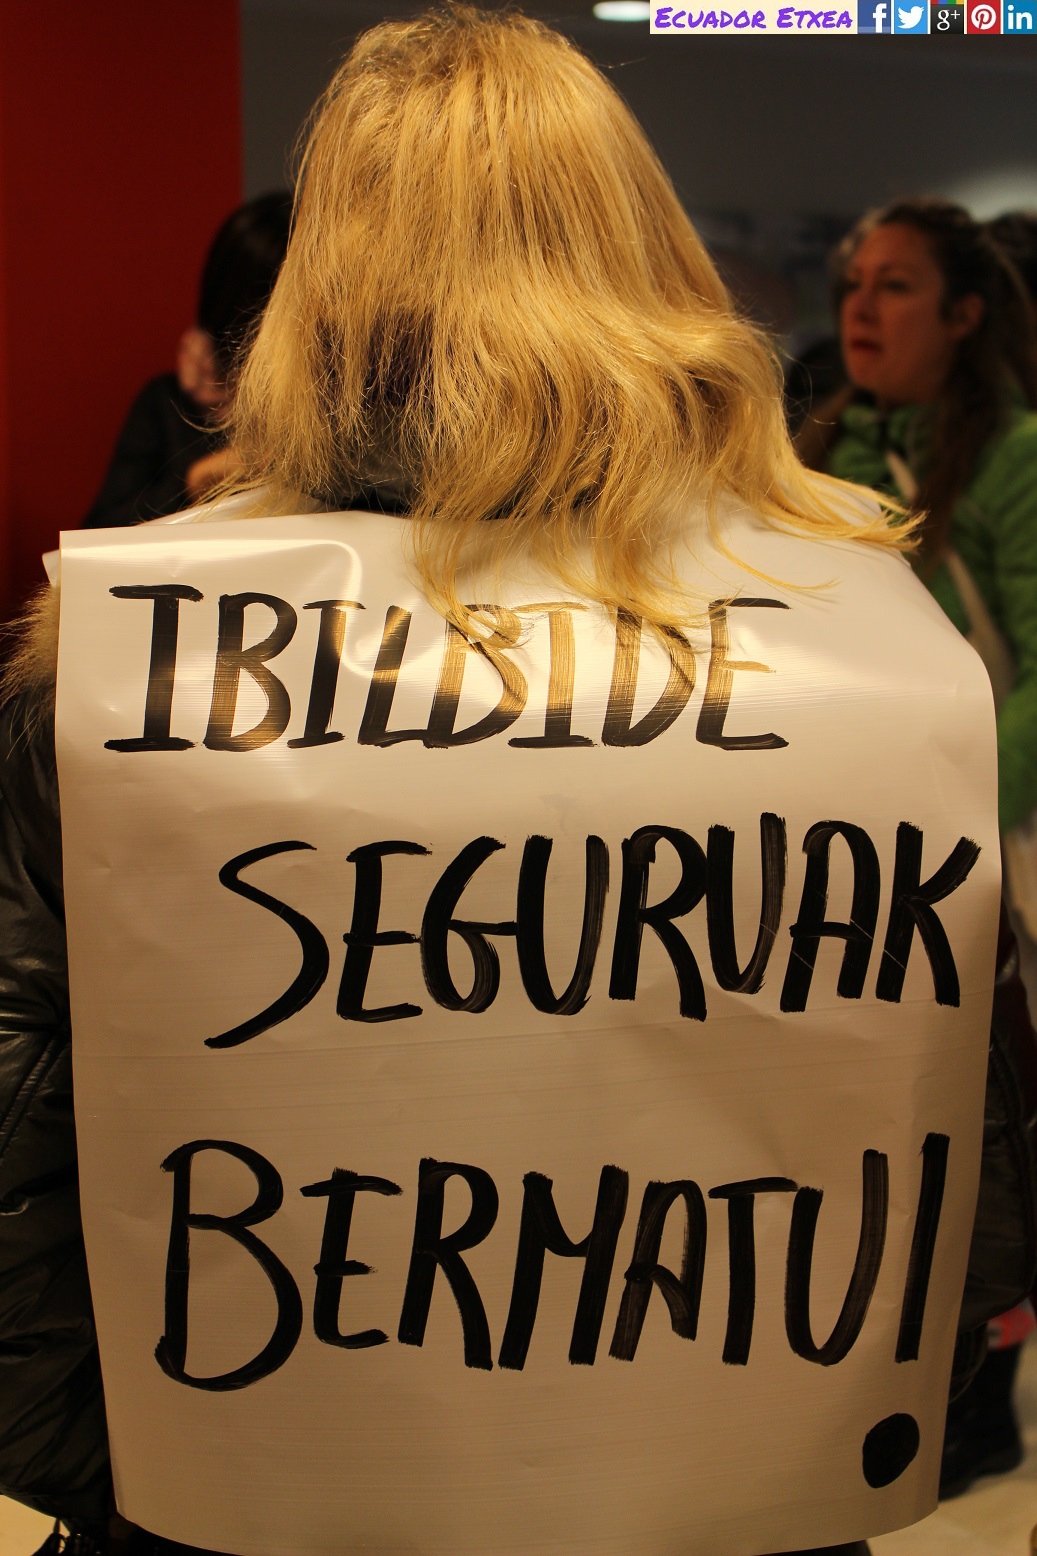 Ecuador Etxea f g+ in
IBILBIDE
SEGURUAK
BERMATU!